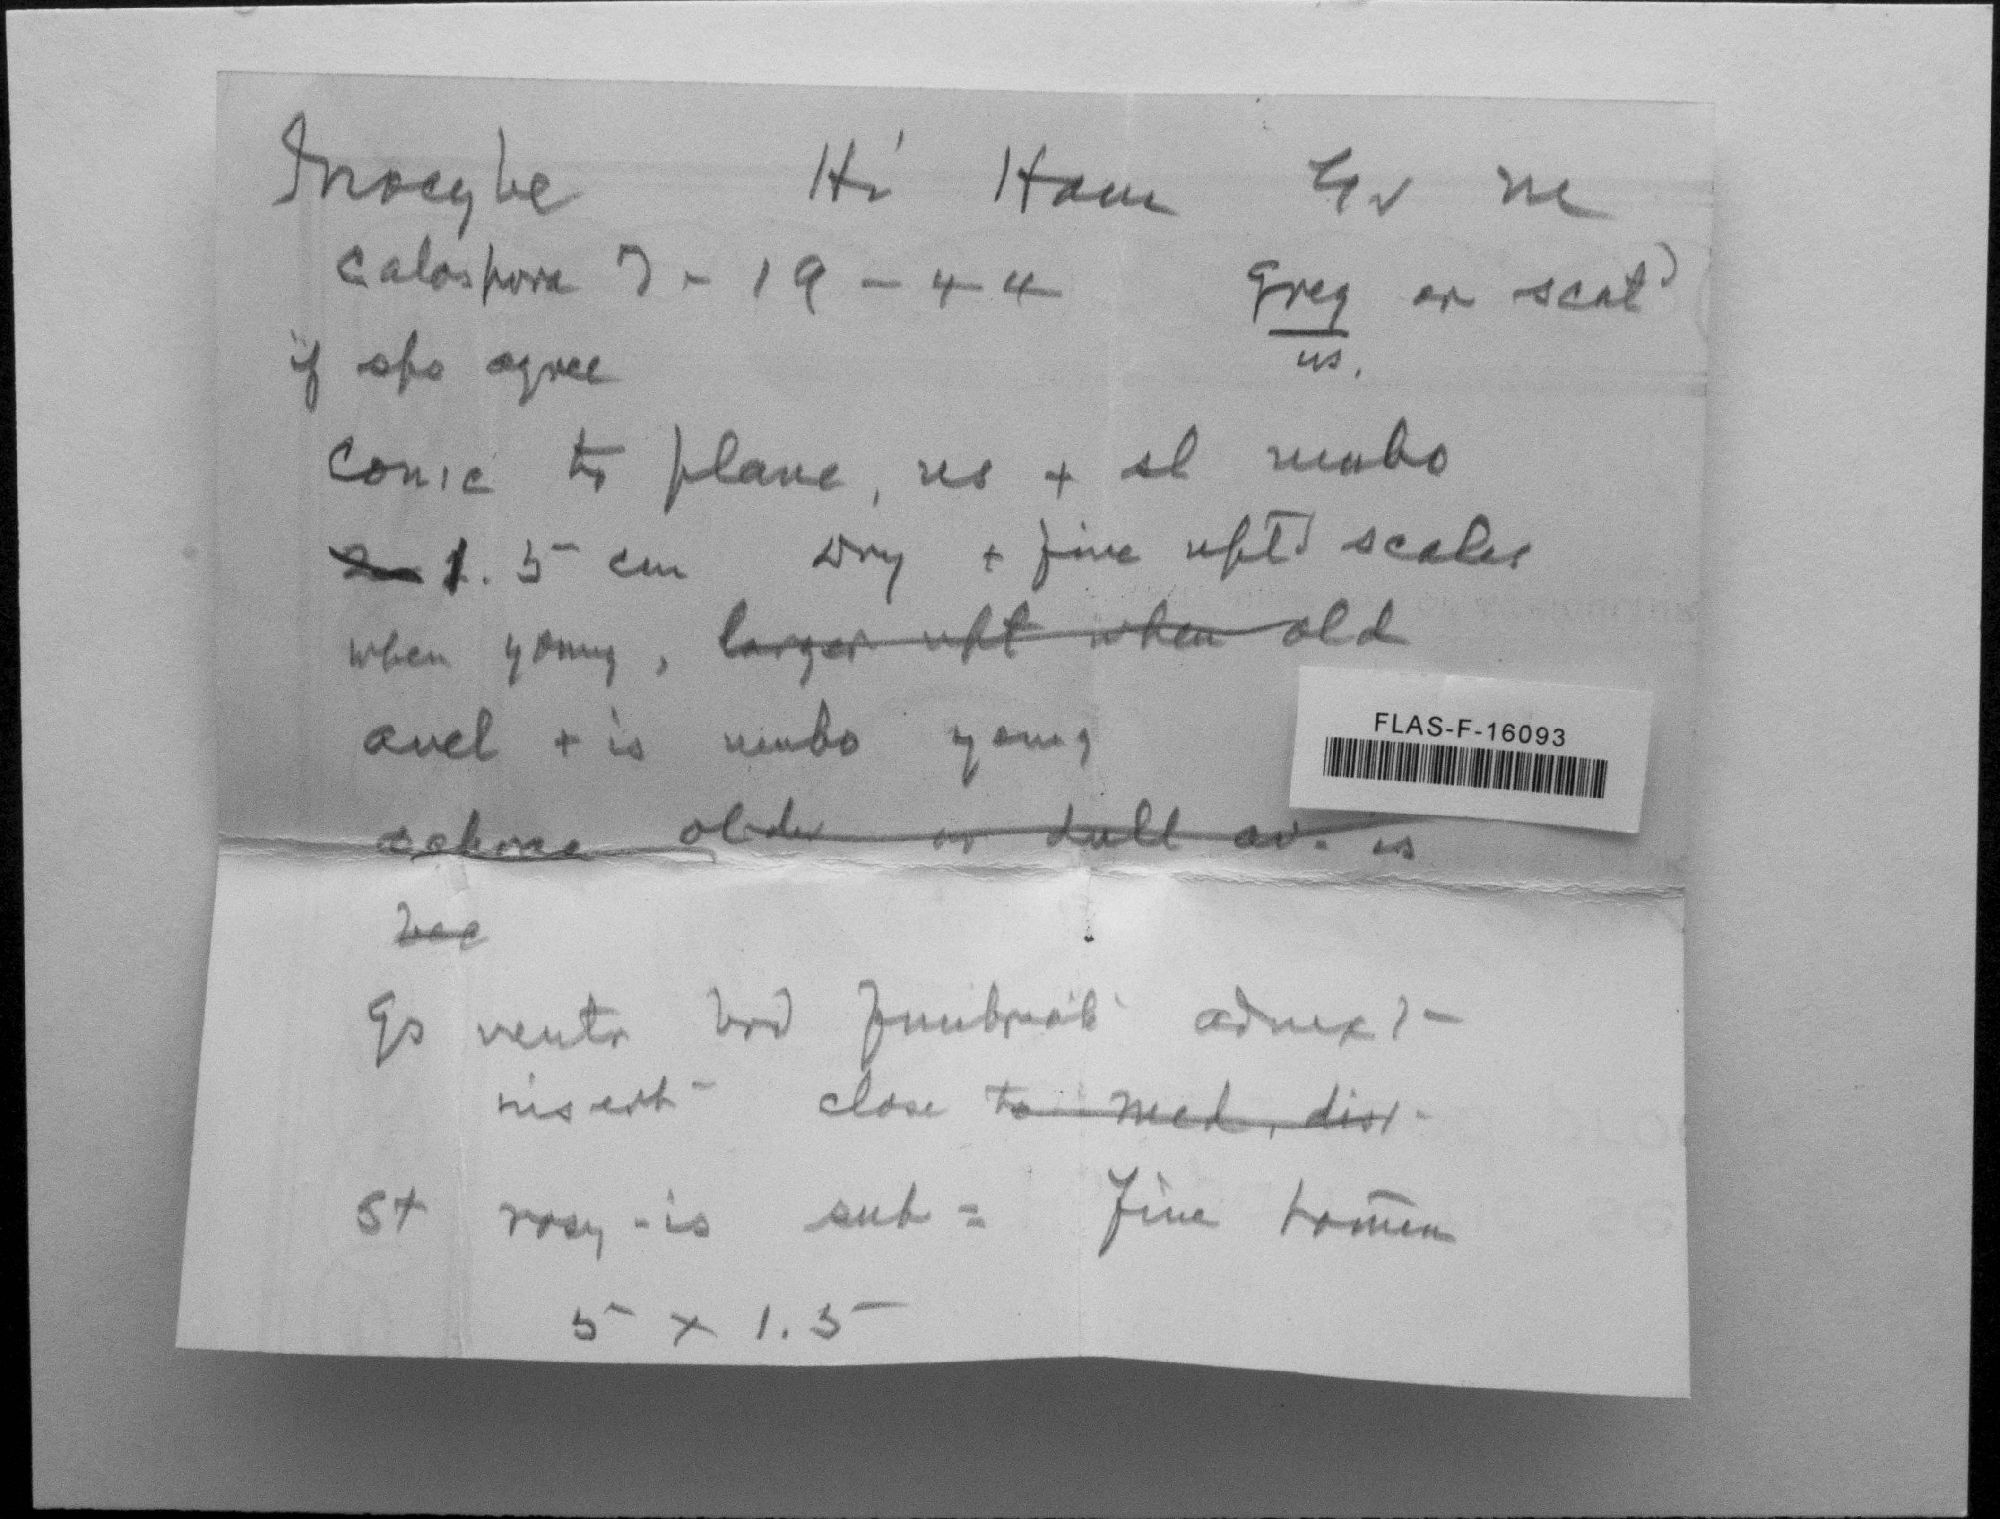 Inocybe Hi Ham Gv
calospora 7-19-44 Greg or scat'
if spo agree us.
conic to plane, us + sl umbo
1.5 cm Dry + fine upt' scales
when young, larger upt when old
avel + is umbo young
older or dull av. is
Gs ventr brd fimbriate adnex'-
insert- close to med. dist-
St rosy-is sub= fine tomen
5 x 1.5
FLAS-F-16093